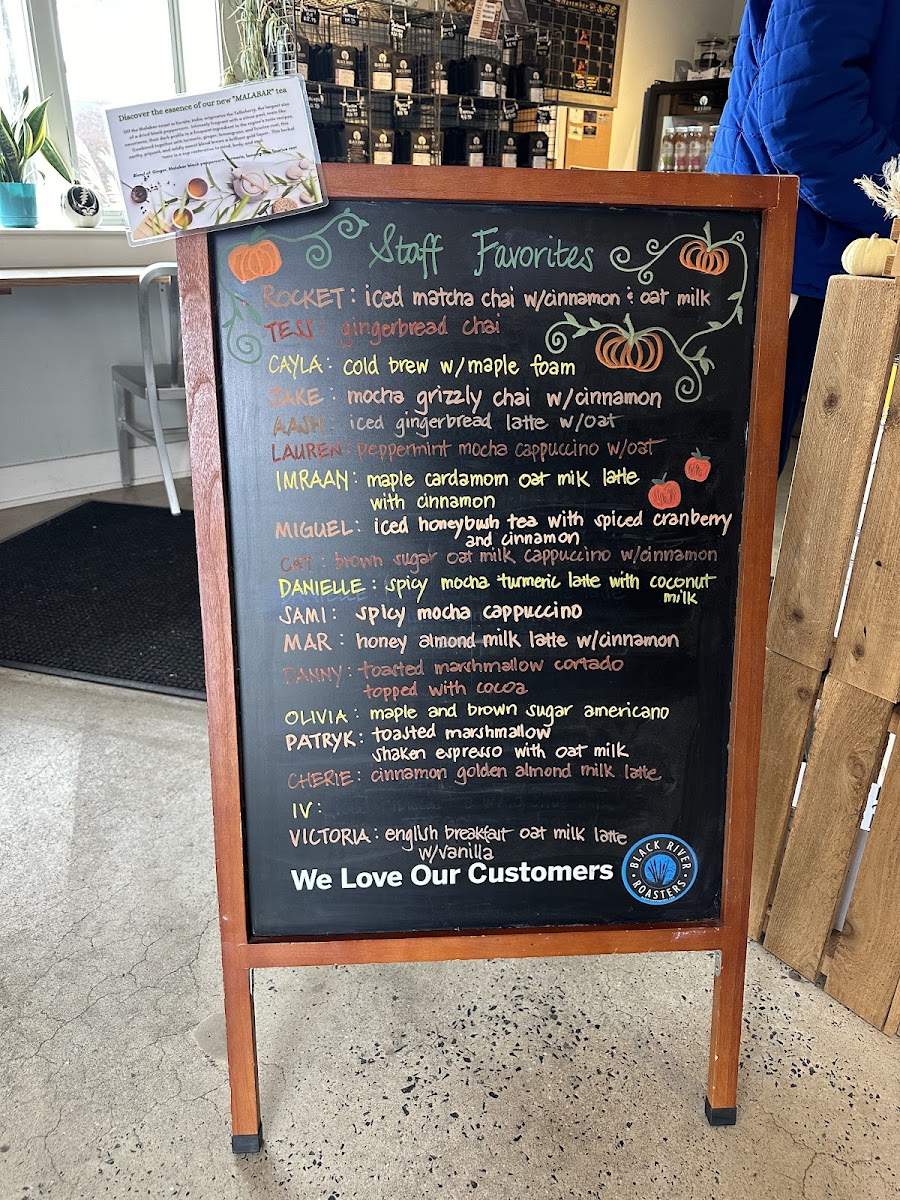 Discover the essence of our new "MALABAR" tea
Staff Favorites
ROCKET: iced matcha chai w/cinnamon & oat milk
TESS: gingerbread chai
CAYLA: cold brew w/maple foam
JAKE: mocha grizzly chai w/cinnamon
AASH: iced gingerbread latte w/oat
LAUREN: peppermint mocha cappuccino w/oat
IMRAAN: maple cardamom oat milk latte
with cinnamon
MIGUEL: iced honeybush tea with spiced cranberry
and cinnamon
CAT: brown sugar oat milk cappuccino w/cinnamon
DANIELLE: spicy mocha turmeric latte with coconut
milk
SAMI: spicy mocha cappuccino
MAR: honey almond milk latte w/cinnamon
DANNY: toasted marshmallow cortado
topped with cocoa
OLIVIA: maple and brown sugar americano
PATRYK: toasted marshmallow
shaken espresso with oat milk
CHERIE: cinnamon golden almond milk latte
IV:
VICTORIA: english breakfast oat milk latte
w/vanilla
We Love Our Customers
BLACK RIVER
ROASTERS